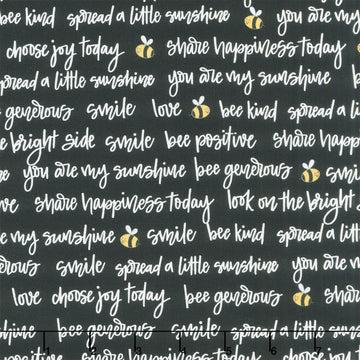 bee kind spread a little sunshine you are my
choose joy today share happiness today
spread a little sunshine you are my sunshine b
bee generous smile love bee kind spread a li
the bright side smile bee positive share happ
e you are my sunshine bee generous smi
ve share happiness today look on the bright
are my sunshine smile bee kind spread a litt
erous smile spread a little sunshine you are
love choose joy today bee generous
hine bee generous smile bee kind sprea
share happiness today bee positive
1 2 3 4 5 6 7